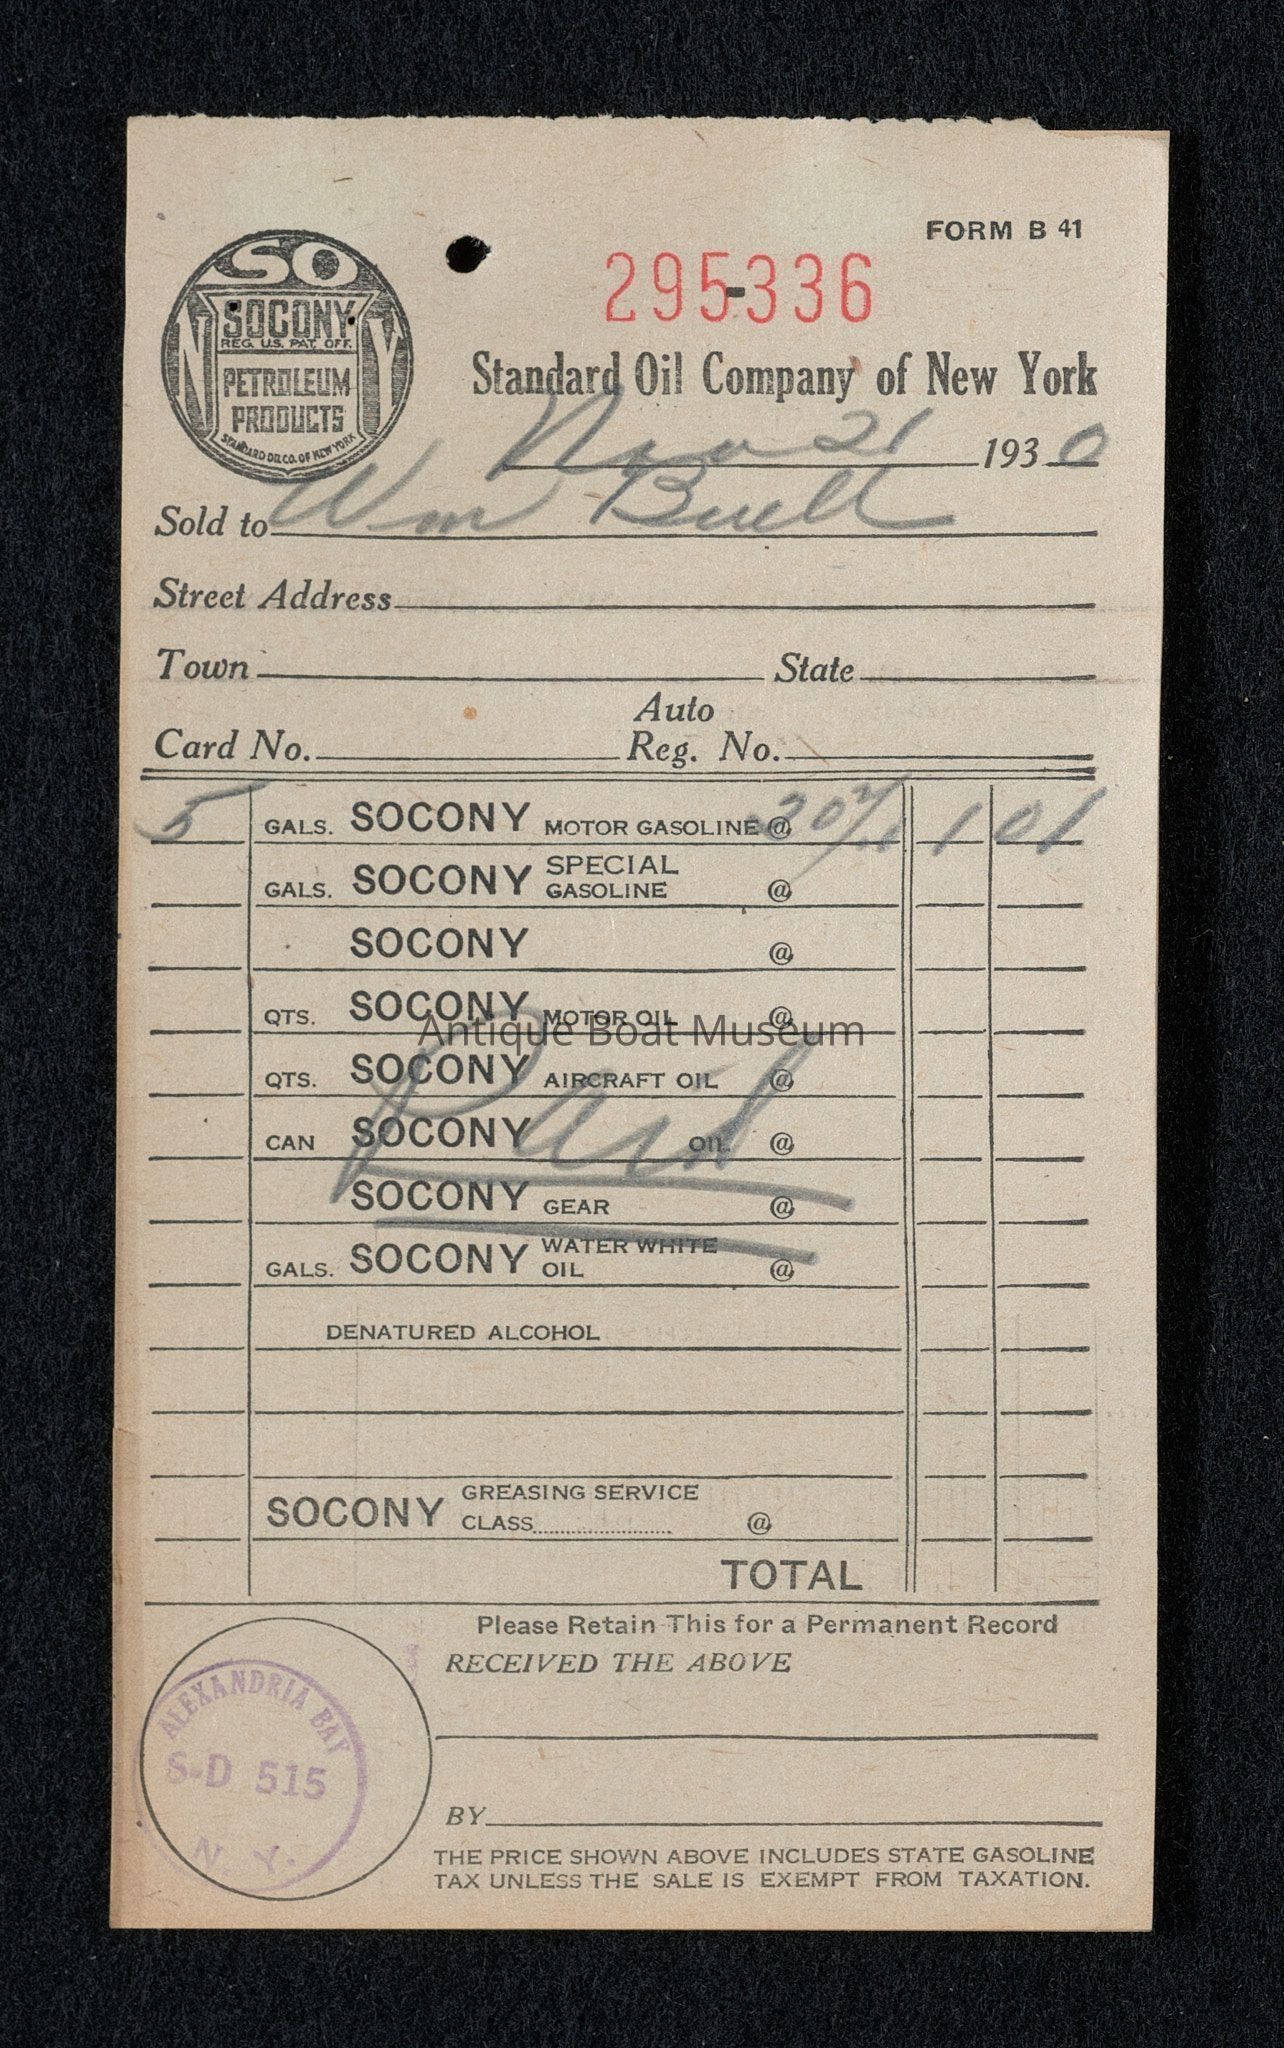 FORM B 41
295-336
SO
N Y
SOCONY
REG. U.S. PAT. OFF.
PETROLEUM
PRODUCTS
STANDARD OIL CO. OF NEW YORK
Standard Oil Company of New York
Nov 21 1930
Sold to Wm Buell
Street Address
Town State
Auto
Card No. Reg. No.
5 GALS. SOCONY MOTOR GASOLINE @ 1 01
GALS. SOCONY SPECIAL GASOLINE @
SOCONY @
QTS. SOCONY MOTOR OIL @
Antique Boat Museum
QTS. SOCONY AIRCRAFT OIL @
CAN SOCONY OIL @
Paid
SOCONY GEAR @
GALS. SOCONY WATER WHITE OIL @
DENATURED ALCOHOL
SOCONY GREASING SERVICE
CLASS @
TOTAL
Please Retain This for a Permanent Record
RECEIVED THE ABOVE
ALEXANDRIA BAY
S-D 515
N. Y.
BY
THE PRICE SHOWN ABOVE INCLUDES STATE GASOLINE
TAX UNLESS THE SALE IS EXEMPT FROM TAXATION.